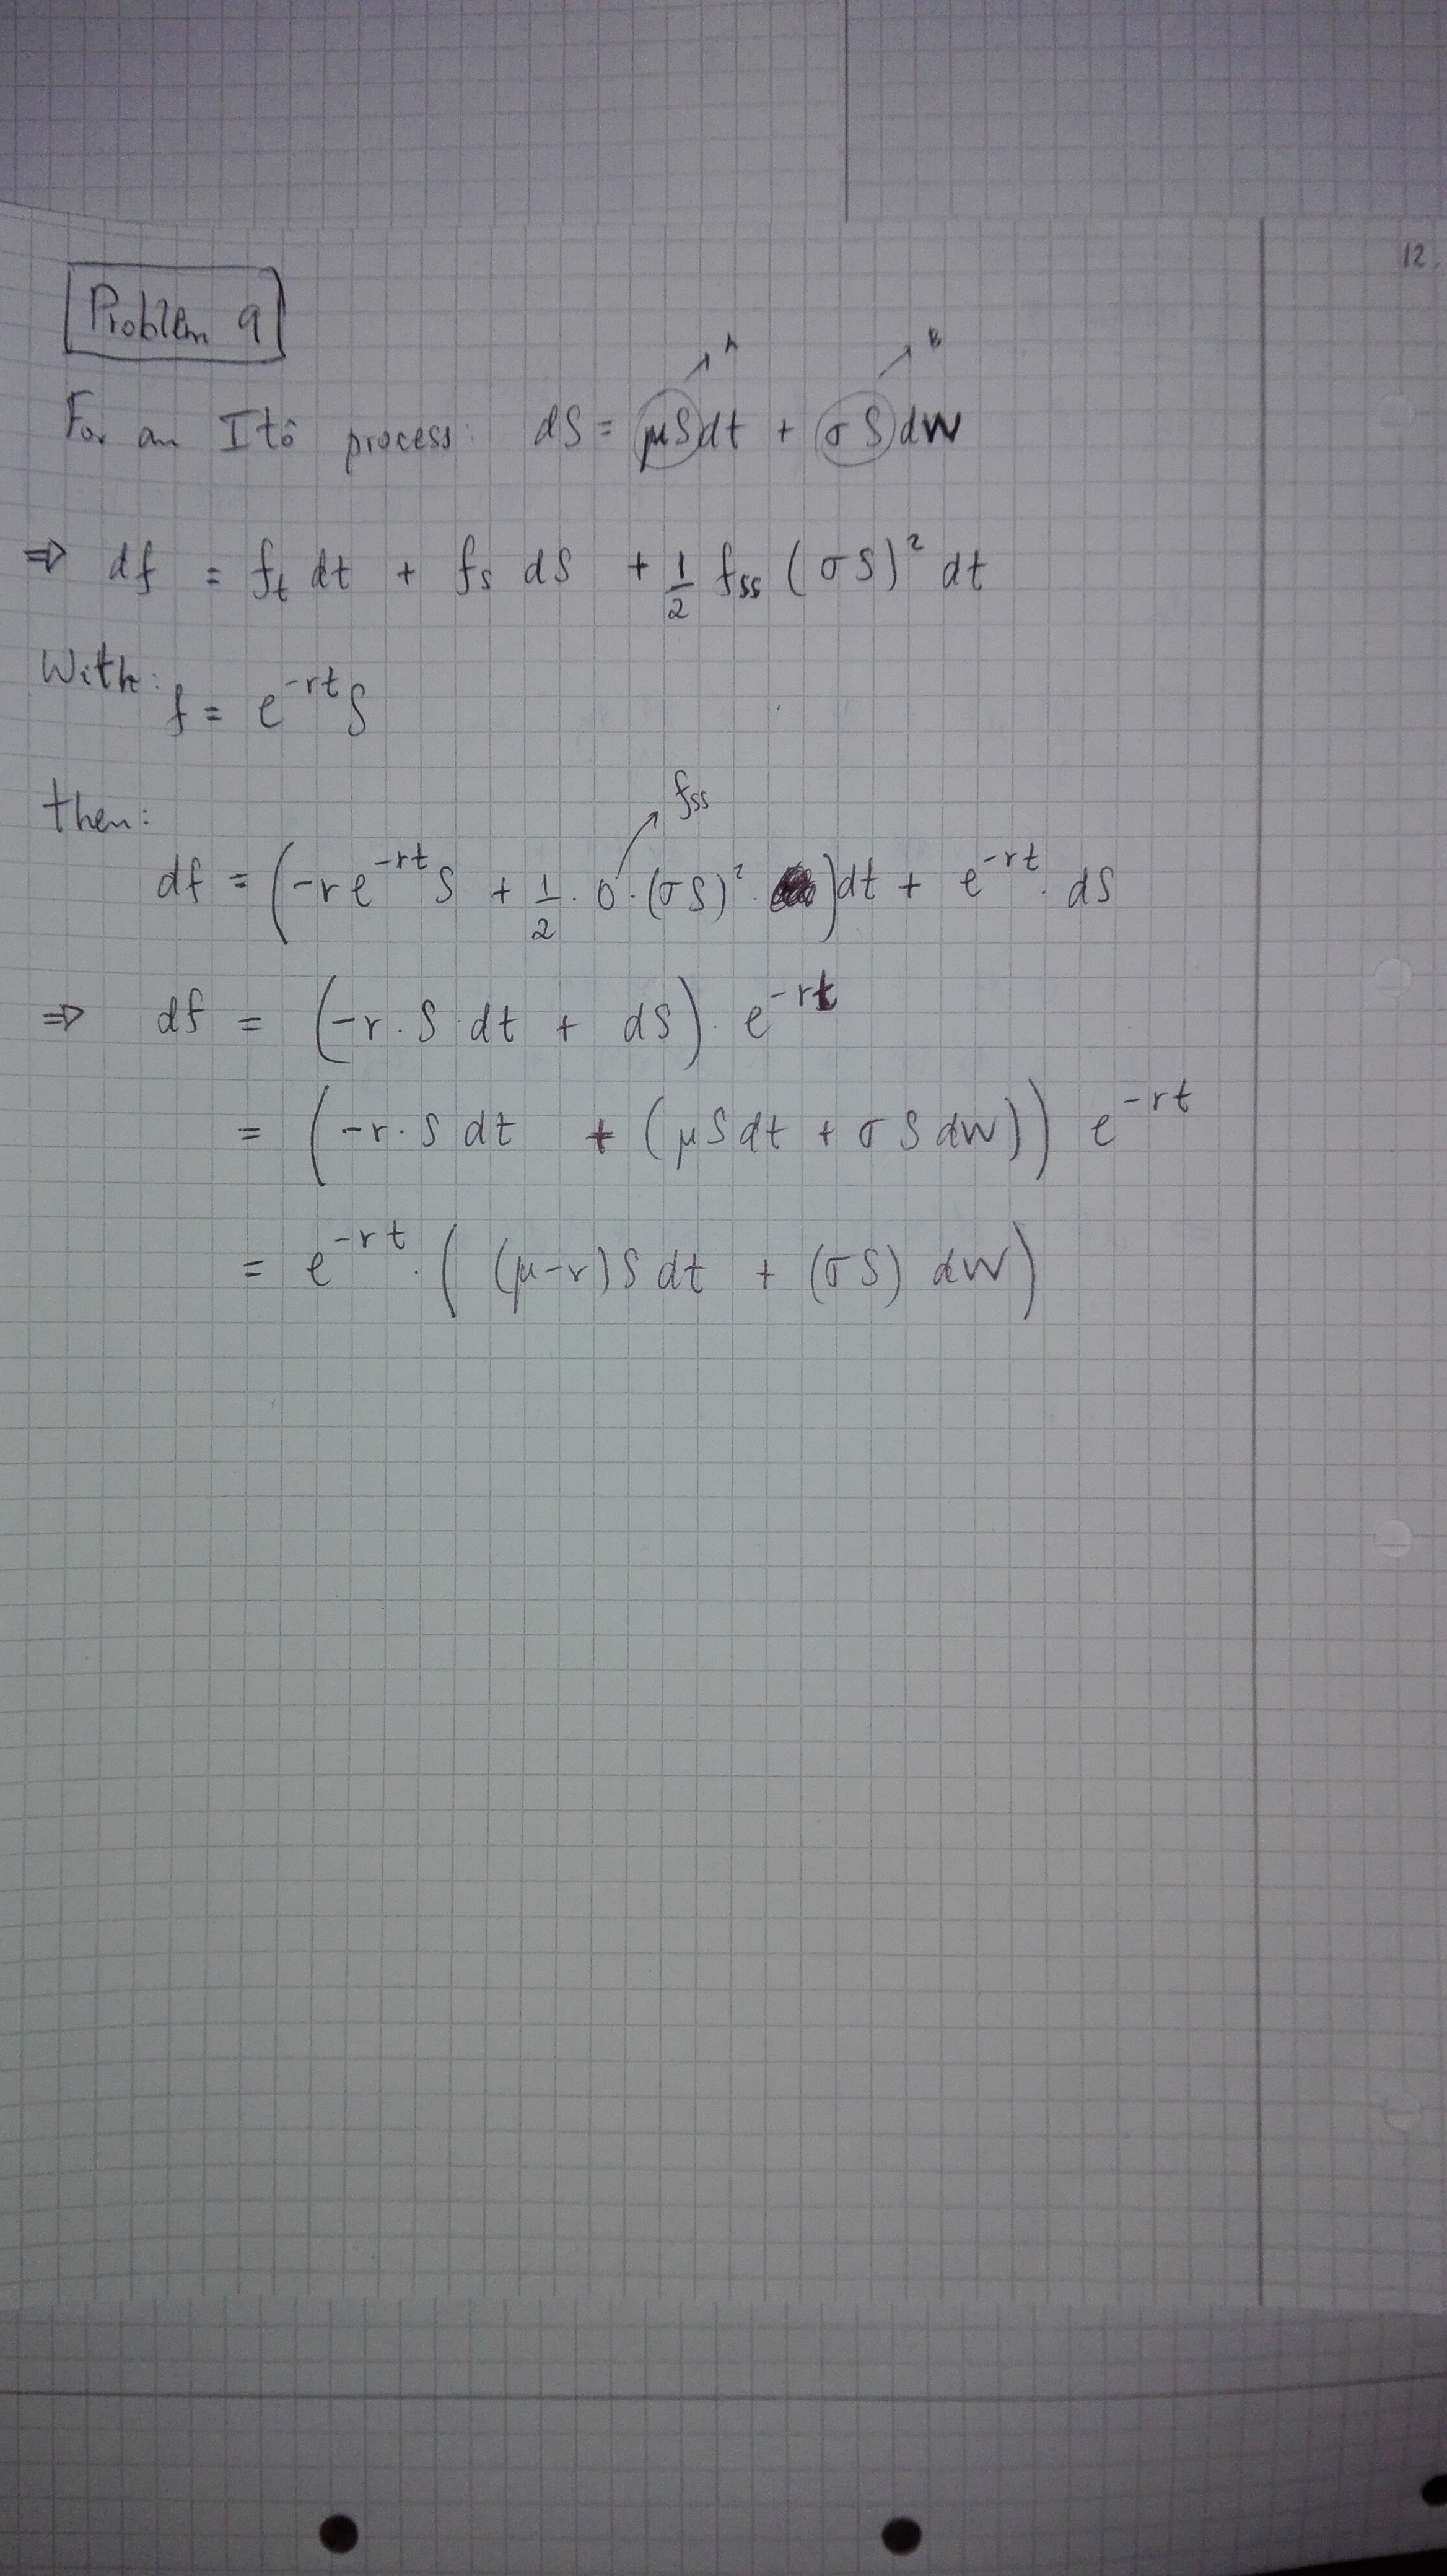 12.
Problem 9
A B
For an Itô process: dS = μS dt + σS dW
⇒ df = f_t dt + f_s dS + 1/2 f_ss (σS)² dt
With:
f = e^{-rt} S
then: f_ss
df = (-r e^{-rt} S + 1/2 · 0 · (σS)² · ) dt + e^{-rt} · dS
⇒ df = (-r · S · dt + dS) · e^{-rt}
= (-r · S dt + (μS dt + σS dW)) e^{-rt}
= e^{-rt} · ((μ-r) S dt + (σS) dW)